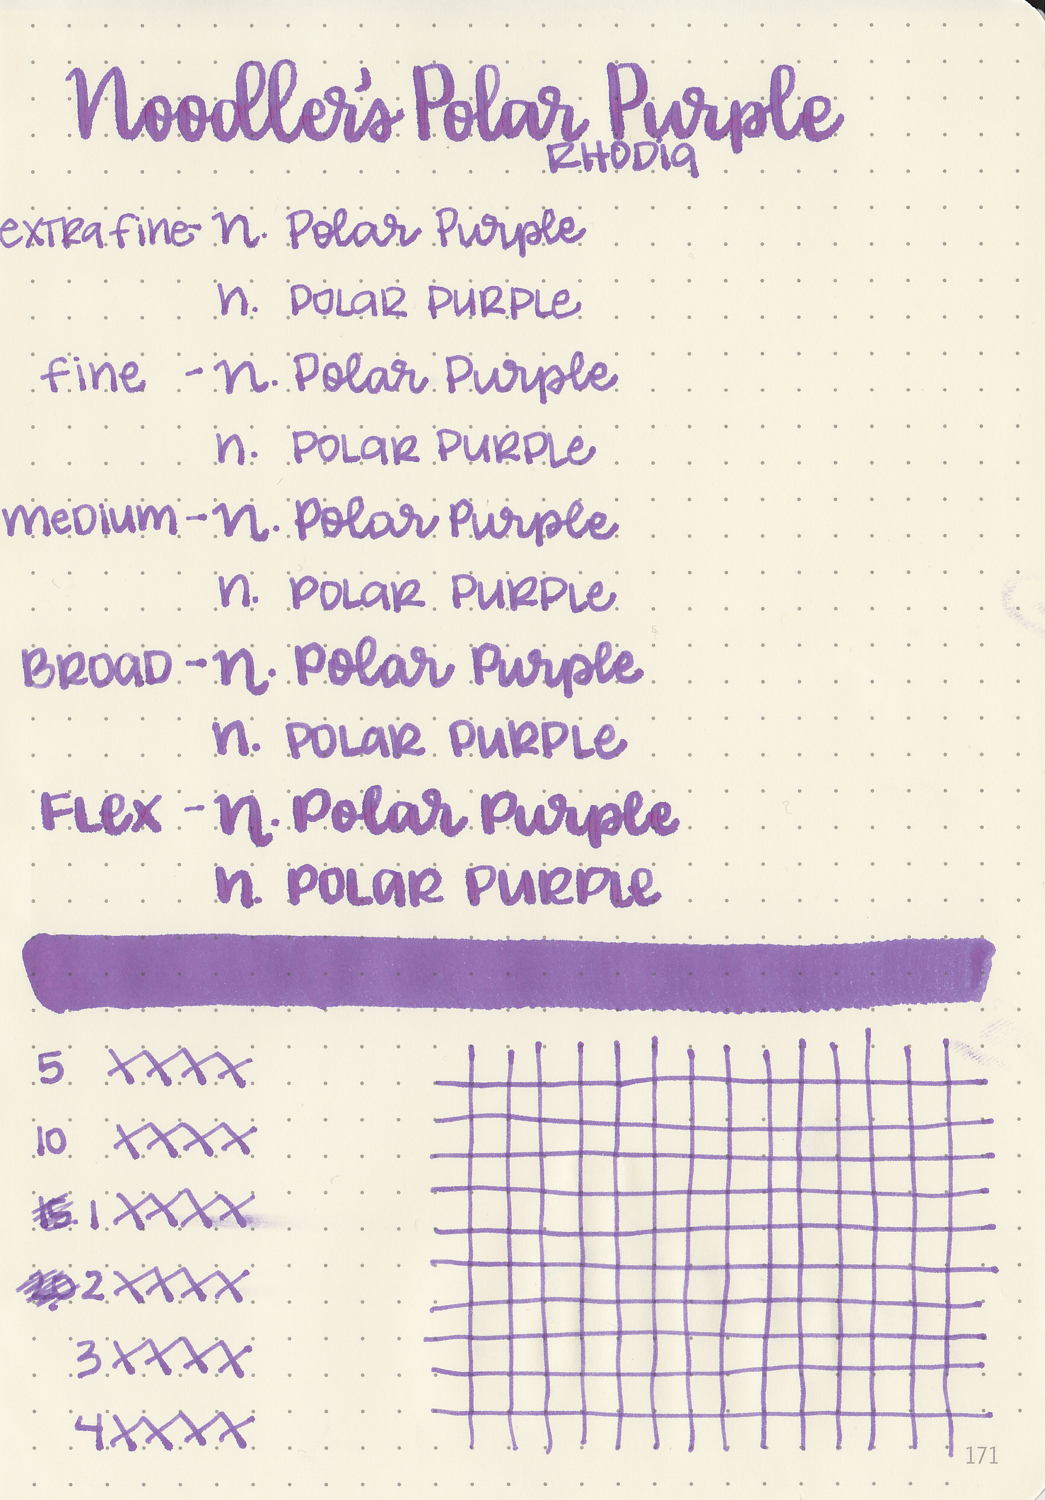 Noodler's Polar Purple
RHODIA
extra fine - n. Polar Purple
n. POLAR PURPLE
fine - n. Polar Purple
n. POLAR PURPLE
medium - n. Polar Purple
n. POLAR PURPLE
BROAD - n. Polar Purple
n. POLAR PURPLE
FLex - n. Polar Purple
n. POLAR PURPLE
5 XXXX
10 XXXX
15 1 XXXX
20 2 XXXX
3 XXXX
4 XXXX
171